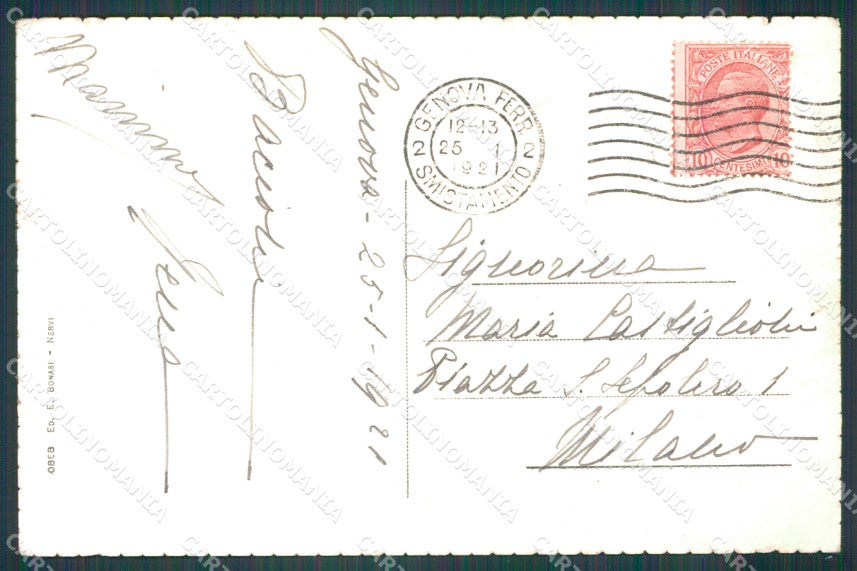 Genova - 25-1-1921
Bacioni
GENOVA FERR.
12-13
25 1
1921
2 2
SMISTAMENTO
POSTE ITALIANE
10 CENTESIMI 10
Signorina
Maria Castiglioni
Piazza S. Sepolcro 1
Milano
ED. E. BONASI - NERVI
CARTOLINOMANIA